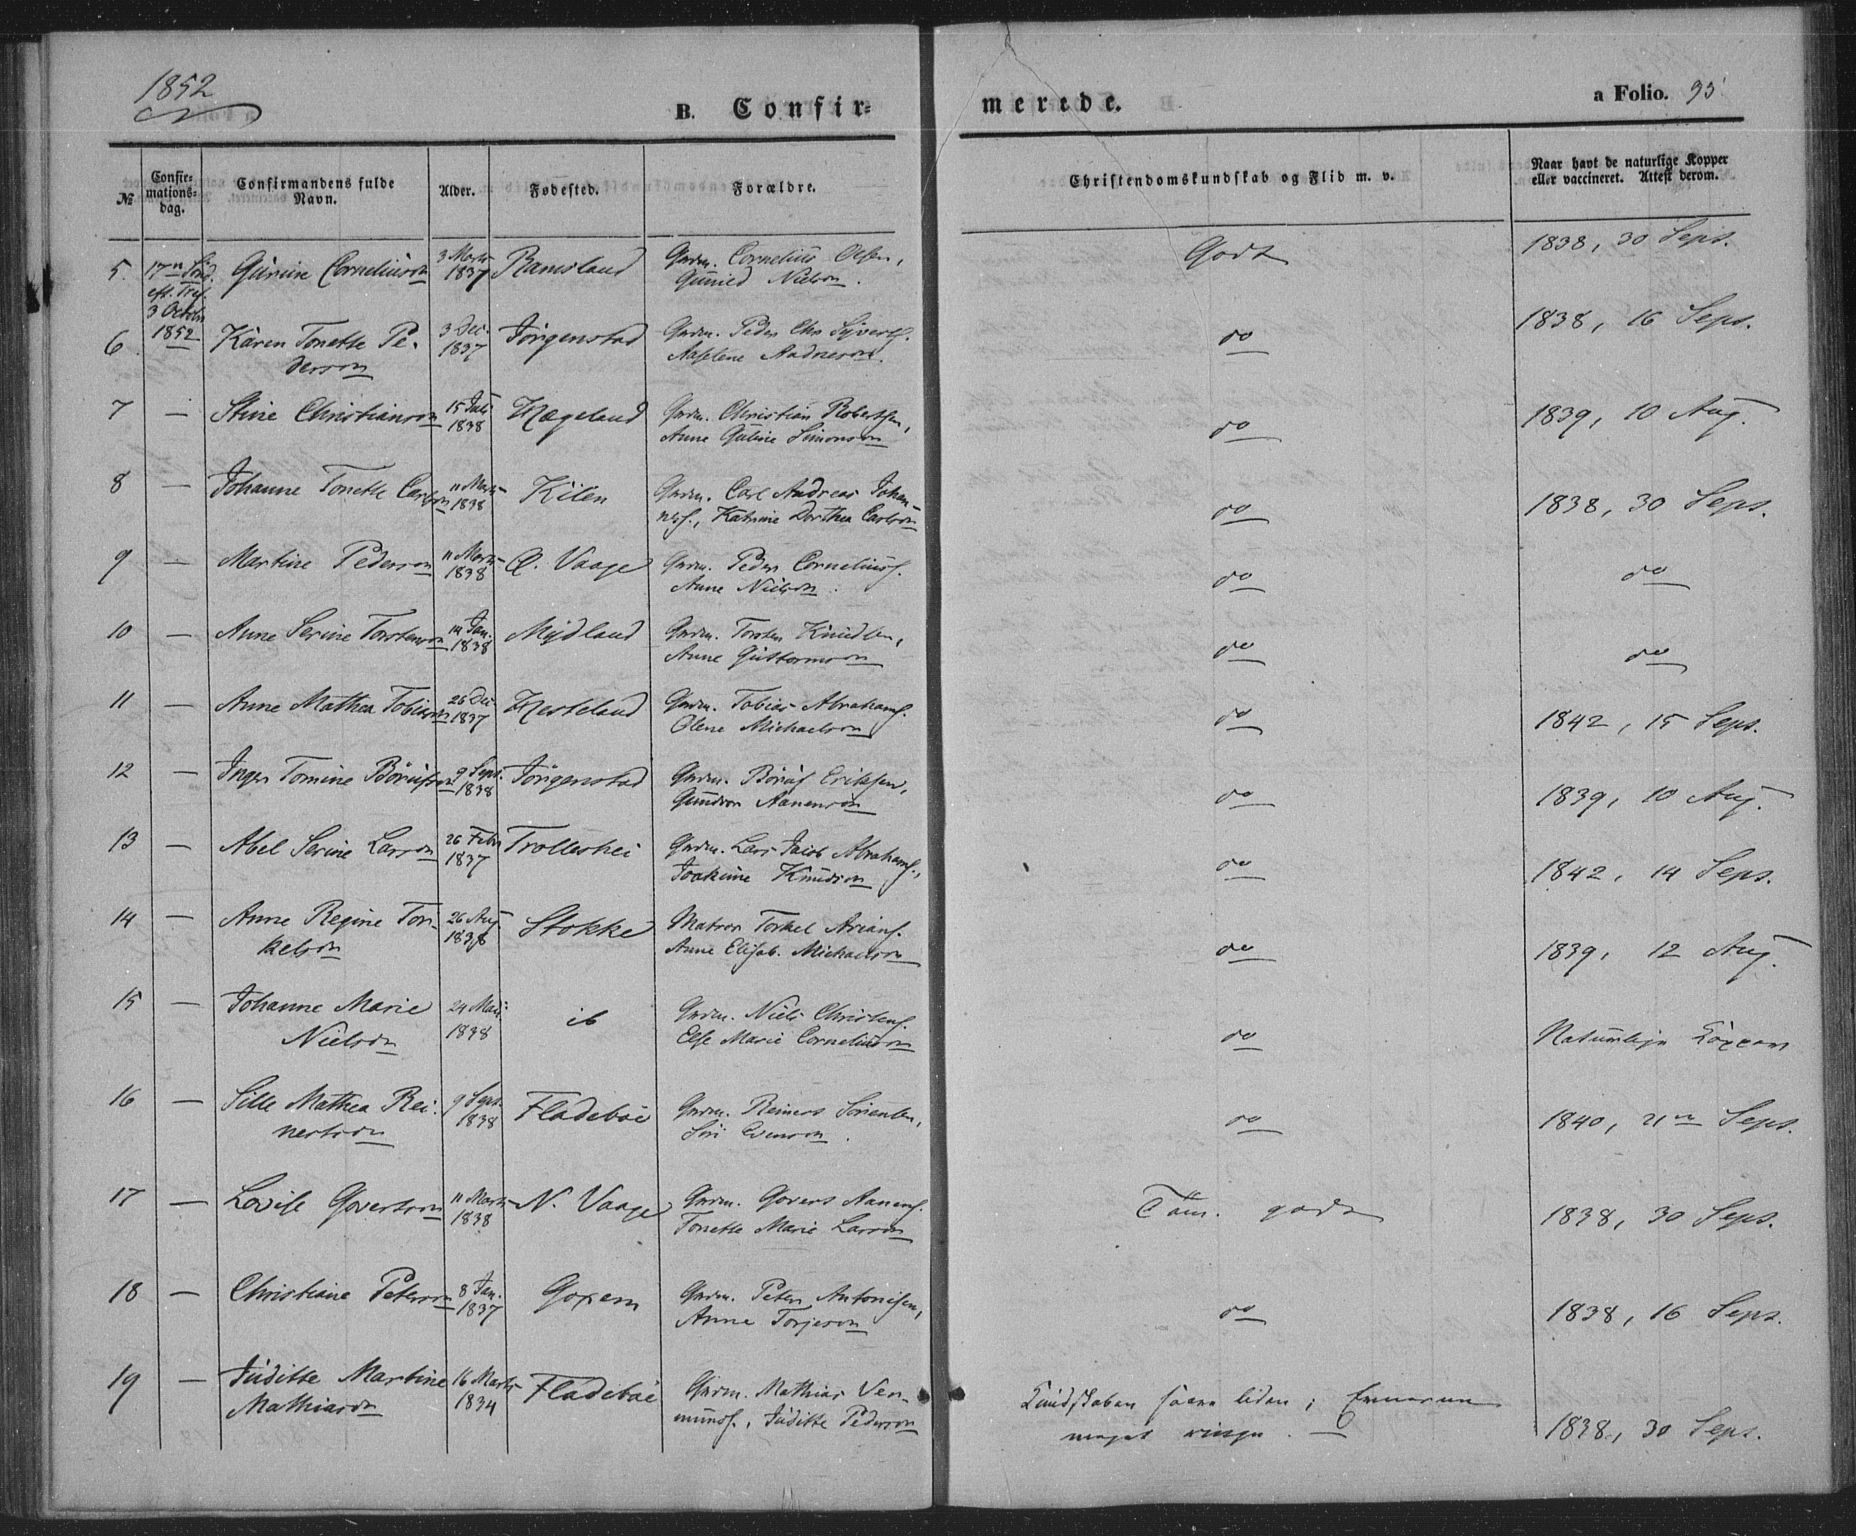 1852
B. Confir- merede. a Folio. 95
№ Confir-mations-dag. Confirmandens fulde Navn. Alder. Fødested. Forældre. Christendomskundskab og Flid m. v. Naar havt de naturlige Kopper eller vaccineret. Attest derom.
5. 17n Sønd. eft. Tref. 3 Octobr 1852 Gurine 3 Marts 1837 Ramsland Grdm. Cornelius Olsen, Godt 1838, 30 Sept.
6 Karen Tonette Pedersdn 3 Dec. 1837 Jörgenstad Grdm. Peder Chr Syverts. Aaselene Aadnesdn. do 1838, 16 Sept.
7 — Stine Christiansdn 15 1838 Hægeland Grdm. Christian Robertsen, Anne Guline Simonsdn do 1839, 10 Aug.
8 — Johanne Tonette Carlsdn 11 Marts 1838 Kilen Grdm. Carl Andreas Johannes., Katrine Dorthea Carlsdn do 1838, 30 Sept.
9 — Martine Pedersdn 11 Marts 1838 Ø. Vaage Grdm. Peder Corneliuss. Anne Nielsdn. do do
10 — Anne Serine Torstensdn 14 Jan. 1838 Mydland Grdm. Torsten Knudsen, Anne Guttormsdn do do
11 — Anne Mathea Tobiasdn 26 Dec 1837 Hesteland Grdm. Tobias Abrahams. Olene Michaelsdn do 1842, 15 Sept.
12 — Inger Tomine 9 Sept. 1838 Jörgenstad Grdm. Eriksen, Gundvor Aanensdn do 1839, 10 Aug.
13 — Abel Serine Larsdn 26 Febr 1837 Trollershei Grdm. Lars Jacob Abrahams., Joakime Knudsdn do 1842, 14 Sept.
14 — Anne Regine Torkelsdn 26 Aug. 1838 Stokke Matros Torkel Arians. Anne Elisab. Michaelsdn do 1839, 12 Aug.
15 — Johanne Marie Nielsdn 24 Mai 1838 ib Grdm. Niels Christens. Else Marie Corneliusdn do Naturlige Kopper
16 — Sille Mathea Reinertsdn 9 Sept. 1838 Fladeböe Grdm. Reinert Sörensen, Siri Evensdn. do 1840, 21n Sept.
17 — Lovise Govertsdn 11 Marts 1838 N. Vaage Grdm. Govert Aanens. Tonette Marie Larsdn Tem. godt 1838, 30 Sept.
18 — Christiane Petersdn 8 Jan. 1837 Goxem Grdm. Peter Antonisen, Anne Torjesdn do 1838, 16 Sept.
19 — Juditte Martine Mathiasdn 16 Marts 1834 Fladeböe Grdm. Mathias Vermunds., Juditte Pedersdn Kundskaben saare liden; Evnerne meget ringe. 1838, 30 Sept.